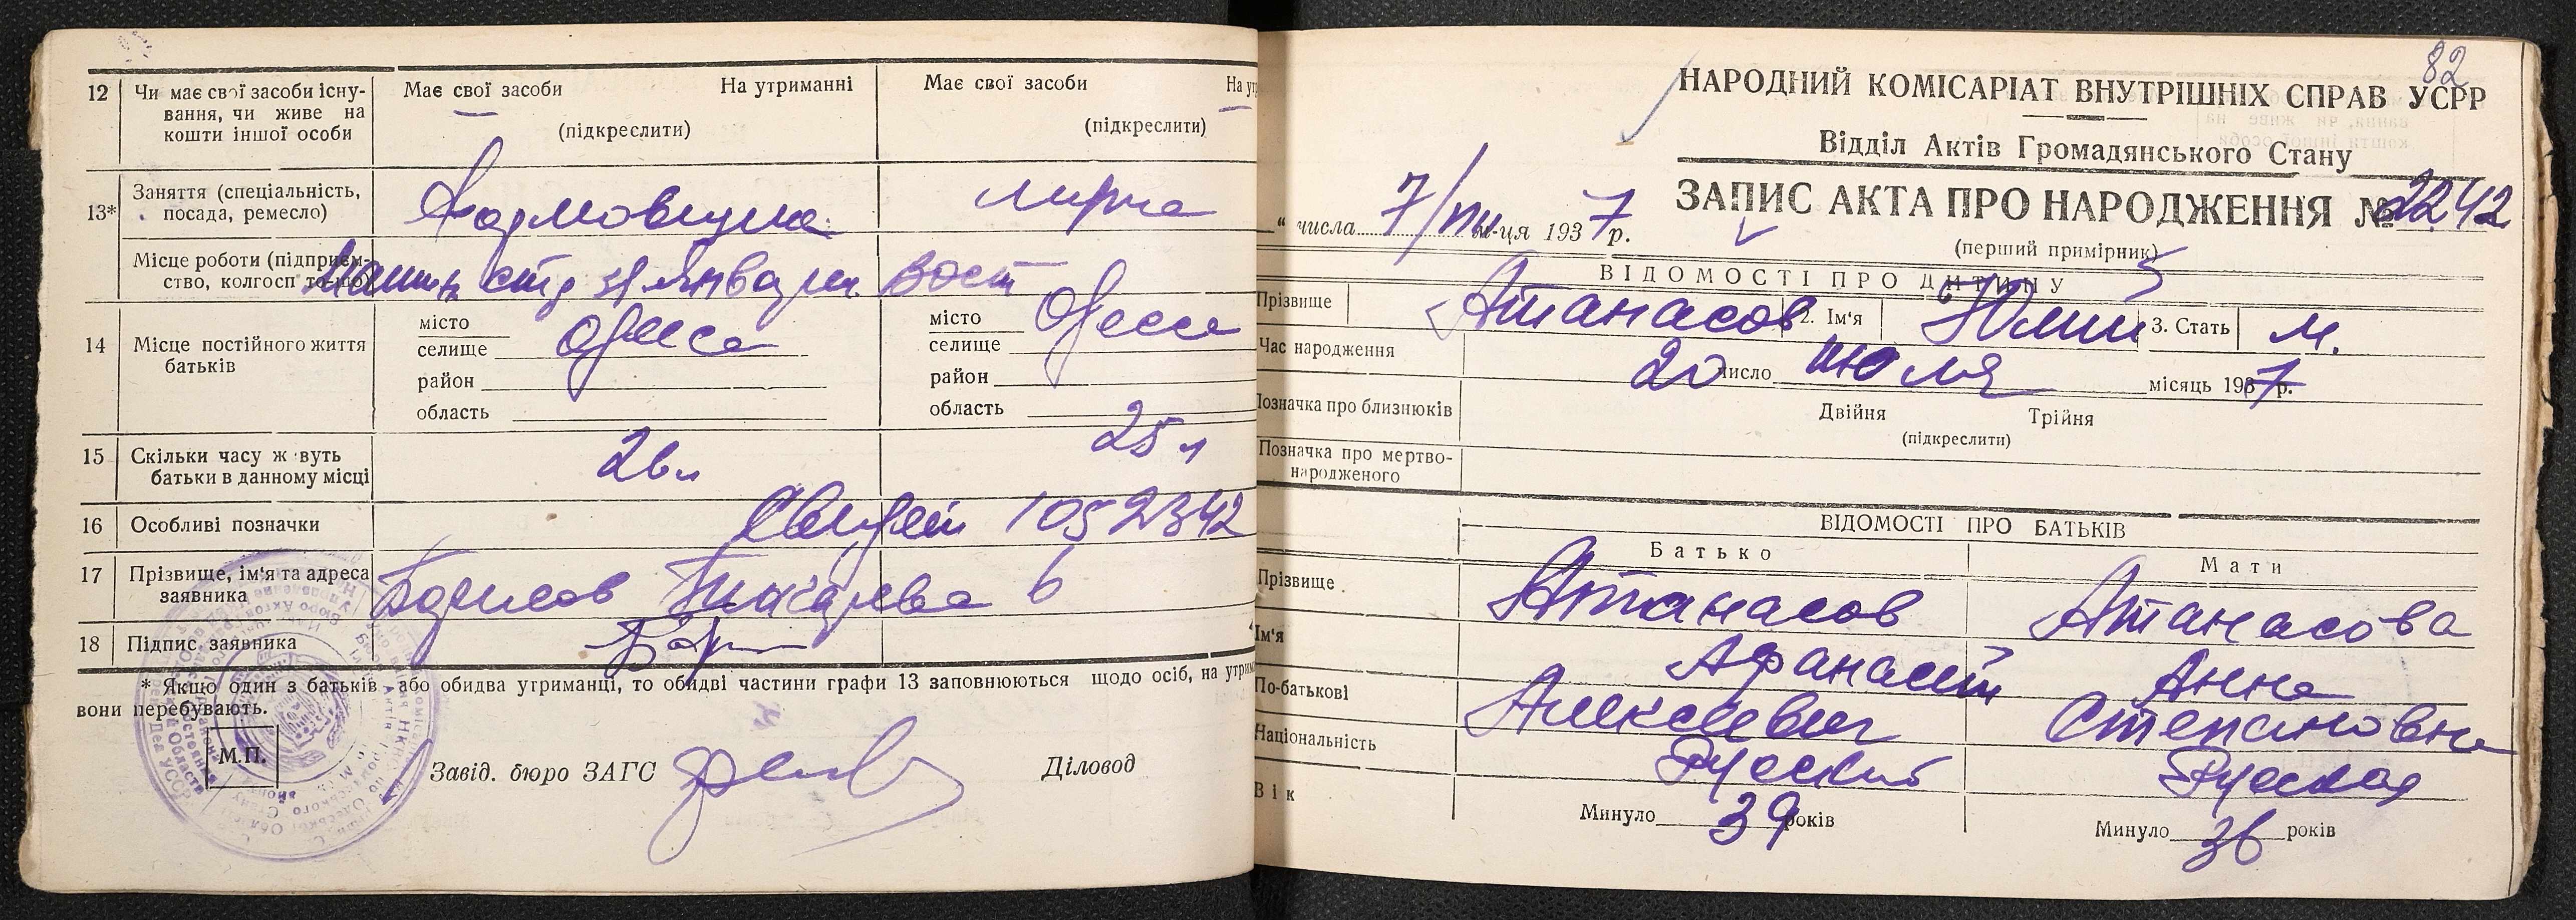 12 Чи має свої засоби існу-
вання, чи живе на
кошти іншої особи
Має свої засоби На утриманні
(підкреслити)
Має свої засоби На ут
(підкреслити)
13* Заняття (спеціальність,
посада, ремесло)
Місце роботи (підприєм-
ство, колгосп то-що)
Января
14 Місце постійного життя
батьків
місто
селище Одесса
район
область
місто
селище Одесса
район
область
15 Скільки часу ж вуть
батьки в данному місці
26 л
25 л
16 Особливі позначки
1052342
17 Прізвище, ім'я та адреса
заявника
Борисов 6
18 Підпис заявника
* Якщо один з батьків або обидва утриманці, то обидві частини графи 13 заповнюються щодо осіб, на утрим
вони перебувають.
М.П.
Завід. бюро ЗАГС
Діловод
82
НАРОДНИЙ КОМІСАРІАТ ВНУТРІШНІХ СПРАВ УСРР
Відділ Актів Громадянського Стану
ЗАПИС АКТА ПРО НАРОДЖЕННЯ № 2242
(перший примірник)
" числа 7/VIII м-ця 1937 р.
ВІДОМОСТІ ПРО ДИТИНУ
Прізвище Атанасов 2. Ім'я Юлий 3. Стать м.
Час народження 20 число июля місяць 1937 р.
Позначка про близнюків
Двійня Трійня
(підкреслити)
Позначка про мертво-
народженого
ВІДОМОСТІ ПРО БАТЬКІВ
Батько Мати
Прізвище Атанасов Атанасова
Ім'я Афанасий Анна
По-батькові Алексеевич Степановна
Національність Русский Русская
Вік Минуло 39 років Минуло 36 років